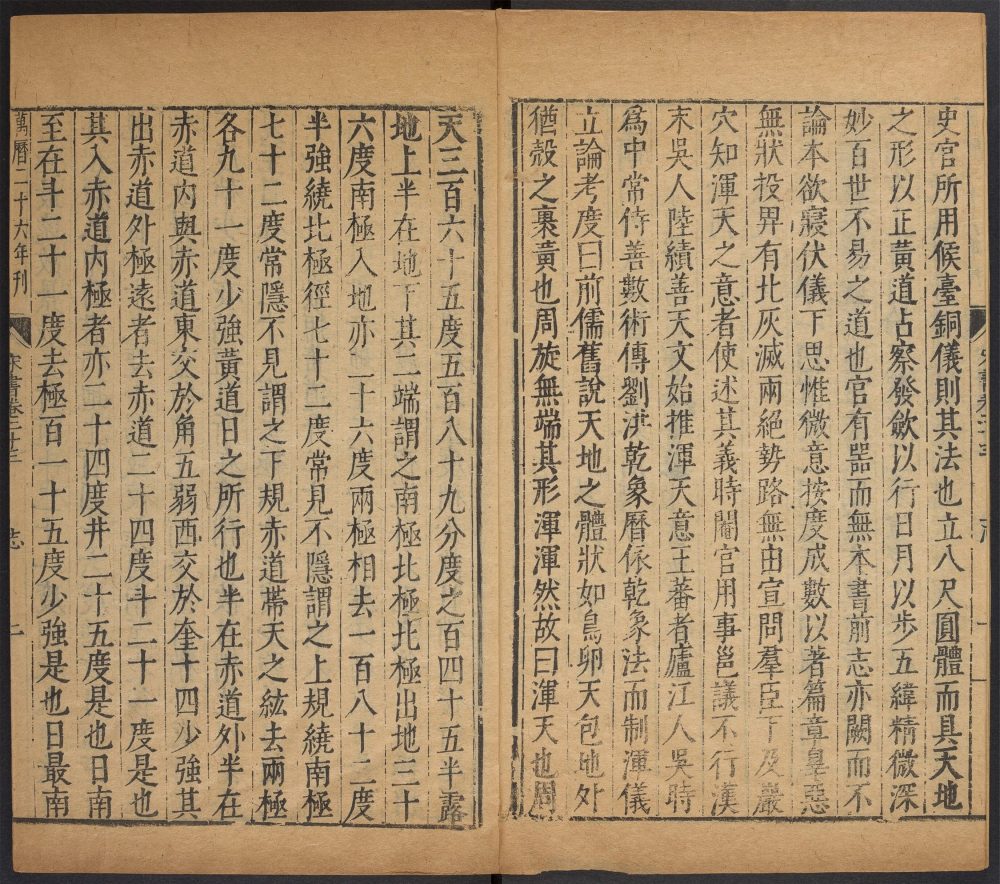 史官所用候臺銅儀則其法也立八尺圓體而具天地
之形以正黃道占察發斂以行日月以步五緯精微深
妙百世不易之道也官有器而無本書前志亦闕而不
論本欲寢伏儀下思惟微意按度成數以著篇章辠惡
無狀投畀有北灰滅兩絕勢路無由宣問羣臣下及巖
穴知渾天之意者使述其義時閹官用事邕議不行漢
末吳人陸績善天文始推渾天意王蕃者廬江人吳時
爲中常侍善數術傳劉洪乾象曆依乾象法而制渾儀
立論考度曰前儒舊說天地之體狀如鳥卵天包地外
猶殼之裹黃也周旋無端其形渾渾然故曰渾天也周
天三百六十五度五百八十九分度之百四十五半露
地上半在地下其二端謂之南極北極北極出地三十
六度南極入地亦三十六度兩極相去一百八十二度
半強繞北極徑七十二度常見不隱謂之上規繞南極
七十二度常隱不見謂之下規赤道帶天之紘去兩極
各九十一度少強黃道日之所行也半在赤道外半在
赤道內與赤道東交於角五弱西交於奎十四少強其
出赤道外極遠者去赤道二十四度斗二十一度是也
其入赤道內極者亦二十四度井二十五度是也日南
至在斗二十一度去極百一十五度少強是也日最南
萬曆二十六年刊
宋書卷二十三
志
二